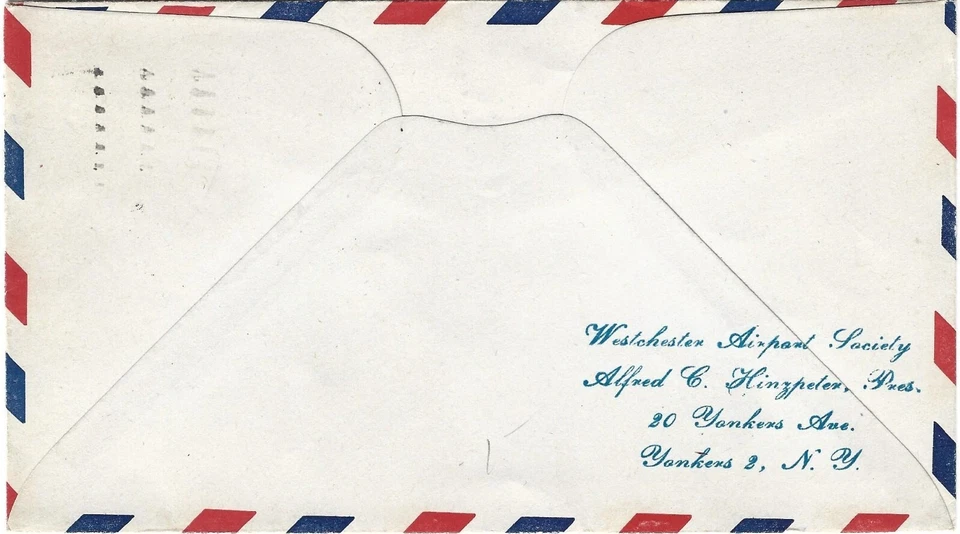 Westchester Airport Society
Alfred C. Hinzpeter, Pres.
20 Yonkers Ave.
Yonkers 2, N. Y.